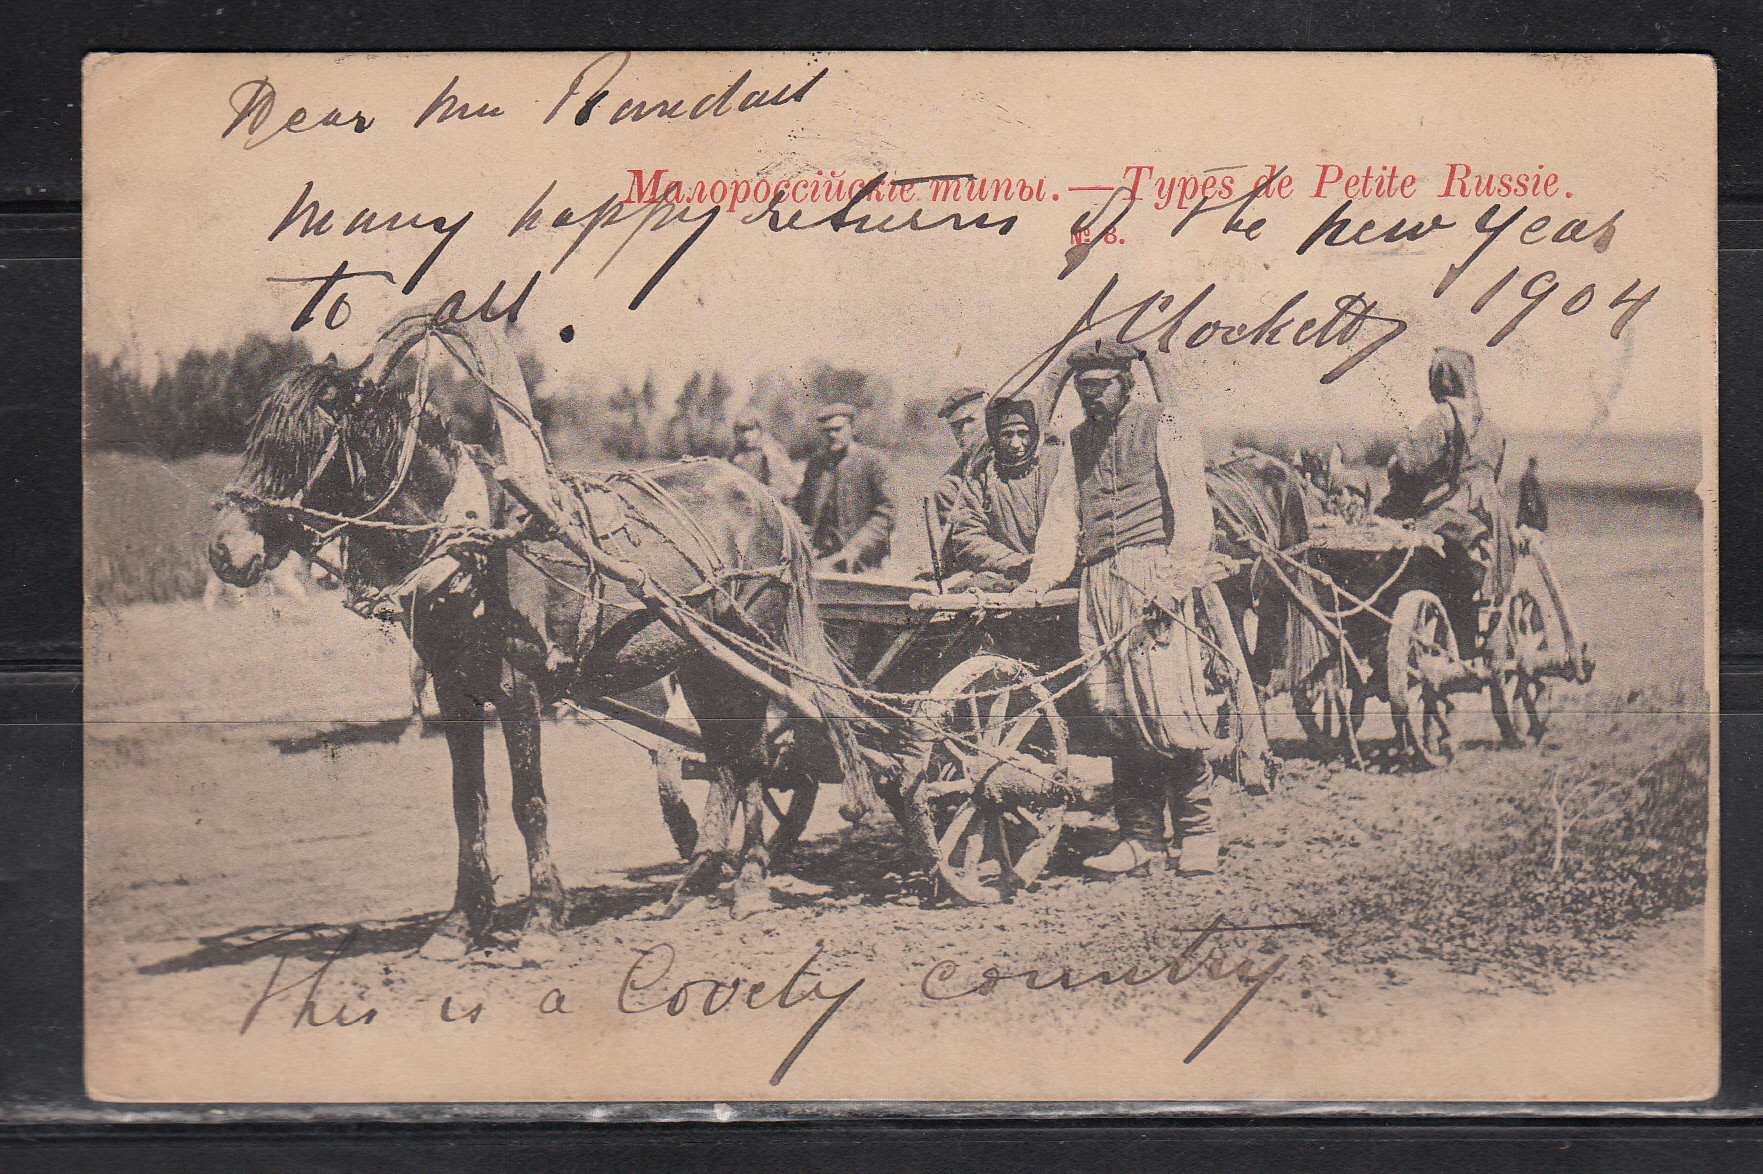 Dear Mr Randall
Малороссійскіе типы. — Types de Petite Russie.
№ 8.
Many happy returns of the new year
to all.
J. Clockett 1904
This is a Covety country